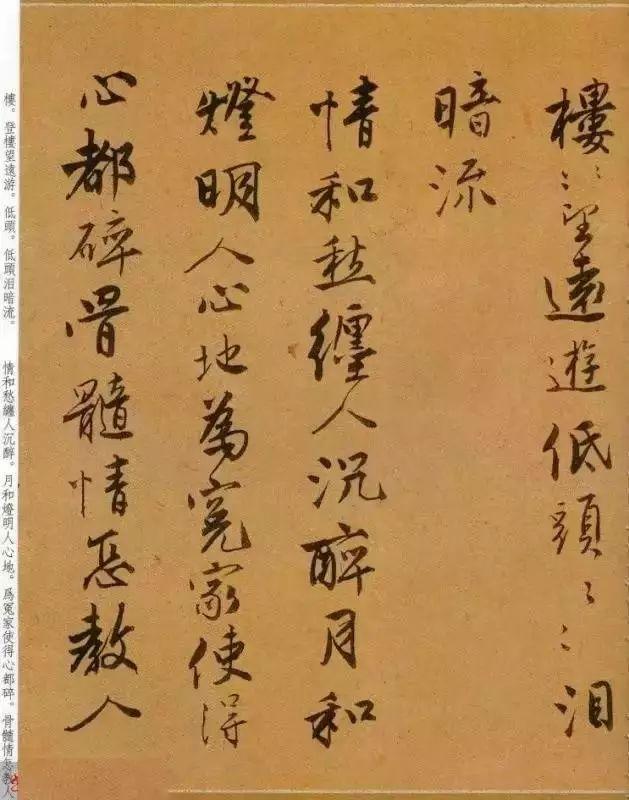 樓〻望遠遊低頭〻〻泪
暗流
情和愁纏人沉醉月和
燈明人心地為冤家使得
心都碎骨髓情怎教人
樓。登樓望遠游。低頭。低頭泪暗流。　情和愁纏人沉醉。月和燈明人心地。爲冤家使得心都碎。骨髓情怎教人